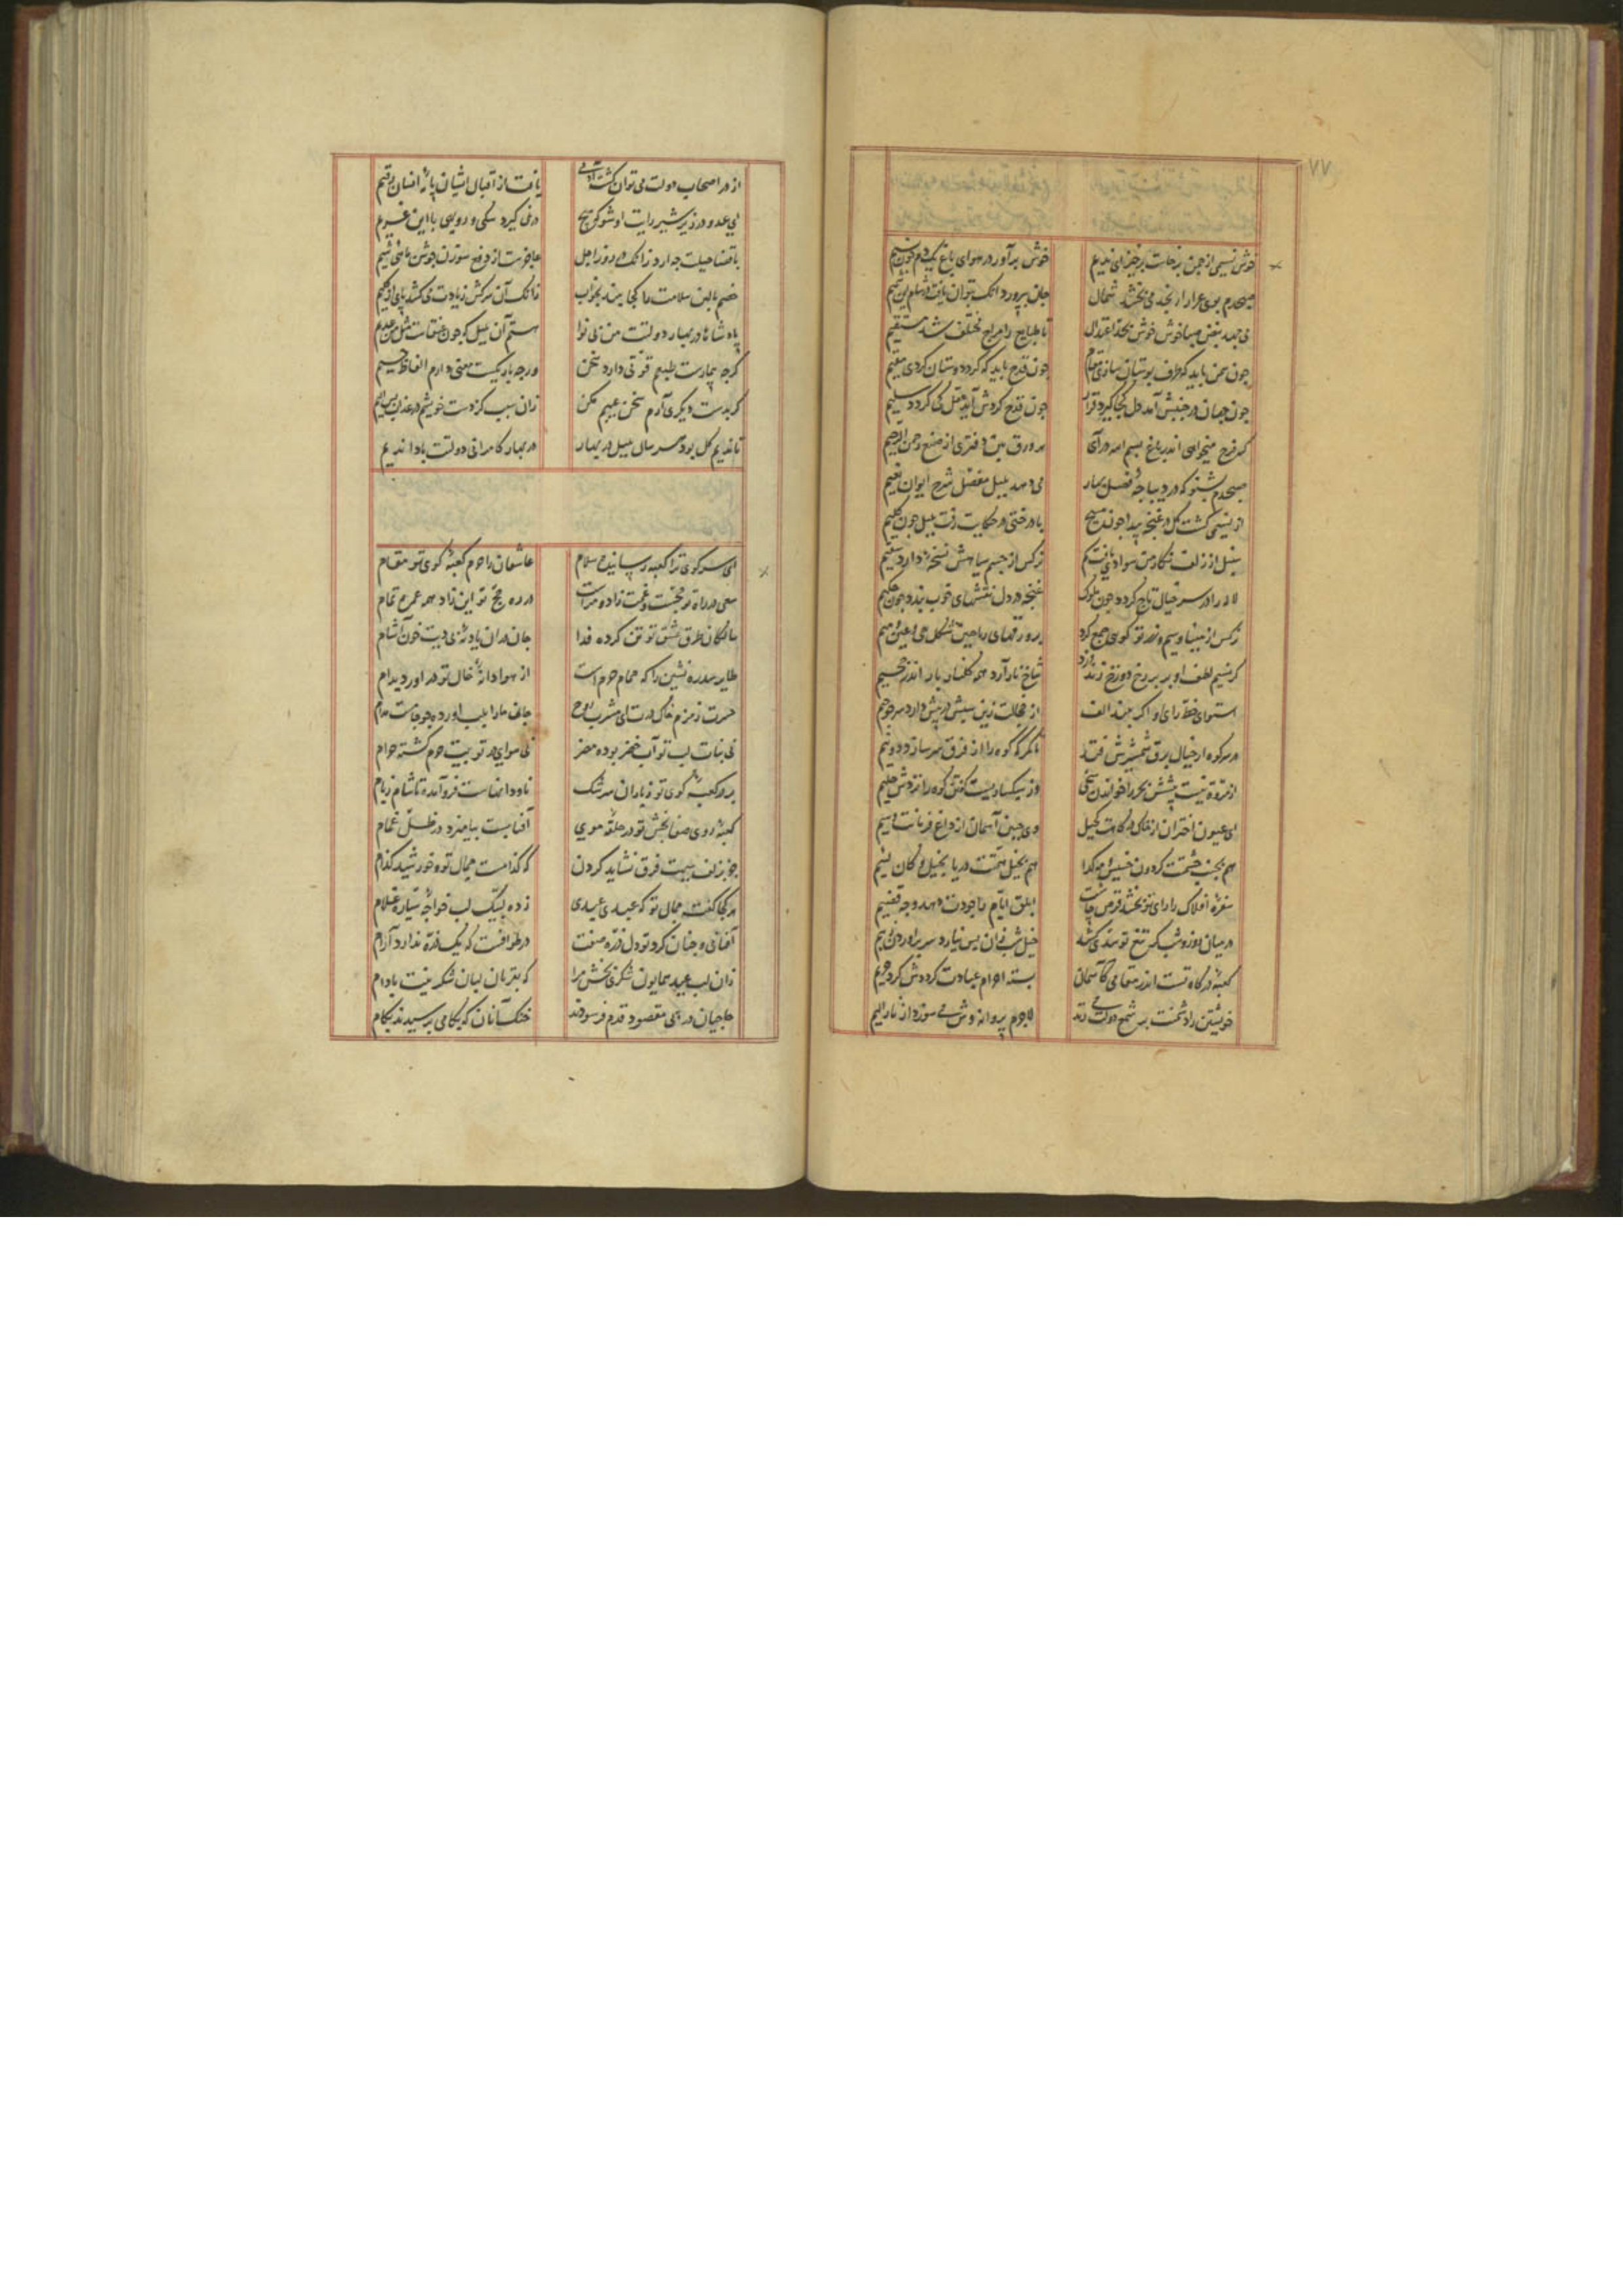 ۷۷
خوش نسیمی از چمن برخاست برخیز ای ندیم
خوش برآور در هوای باغ یک دم چون نسیم
صبحدم بوی عرار از نجد می‌بخشد شمال
جان بپرورد
می جهد نبض صبا خوش خوش بحد اعتدال
تا طبایع را مزاج مختلف شد مستقیم
چون چمن باید که طرف بوستان سازی مقام
چون قدح باید که گرد دوستان گردی مقیم
چون جهان در جنبش آمد دل کجا گیرد قرار
چون قدح گردش آید عقل کی گردد سلیم
گر فرح میخواهی اندر باغ بسم الله درآی
هر ورق بین دفتری از صنع رحمن الرحیم
صبحدم بشنو که در دیباجه فصل بهار
می دهد بلبل مفصل شرح ایوان نعیم
از نسیمی گشت گل در غنچه پیدا چون مسیح
با درختی در حکایت رفت بلبل چون کلیم
سنبل از زلف نگار من سوادی یافتم
نرگس از چشم سیاهش نسخه دارد سقیم
لاله را در سر خیال تاج گردد چون ملوک
غنچه در دل نقشهای خوب بندد چون حکیم
نرگس از مینا و سیم و زر تو گویی جمع کرد
بر ورقهای ریاحین شکل جیم و عین و میم
گر نسیم لطف او بر برزخ دوزخ زند
شاخ نار آرد همه گلنار بار اندر جحیم
استوای خط رای او اگر بیند الف
از خجالت زین سپس در پیش دارد سر چو جیم
در سر کوه ار خیال برق شمشیرش فتد
تا کمرگه کوه را از فرق سر سازد دو نیم
از مروت نیست پیشش بحر را خواندن سخی
وز سبکساریست گفتن کوه را نزدش حلیم
ای عیون اختران از خاک درگاهت کحیل
وی جبین آسمان از داغ فرمانت وسیم
هم بجنب حشمت گردون خسیس و مه گدا
هم بخیل همتت دریا بخیل و کان لئیم
سفره افلاک را رای تو بخشد قرص چاشت
ابلق ایام را جودت دهد وجه قضیم
در میان روز و شب گر تیغ تو سدی کشد
خیل شب زان پس نیارد سر برآوردن ز بیم
کعبه درگاه تست اندر مقامی کآسمان
بسته احرام عبادت گردش گردد حریم
خویشتن را دشمنت بر شمع دولت می زند
لاجرم پروانه وش می سوزد از نار الیم
از در اصحاب دولت می توان گشت آدمی
یافت از اقبال ایشان پایه انسان رقیم
ای عدو در زیر شیر رایت او شو که هیچ
در نمی گیرد سگی و روبهی با این غریم
با قضا حیلت چه دارد زانک در روز اجل
عاجزست از دفع سوزن جوشن ماهی شیم
خصم بالین سلامت را کجا بیند بخواب
زانک آن سرکش زیادت می کشد پای از گلیم
پادشاها در بهار دولتت من بی نوا
هستم آن بلبل که چون عنقاست مثل من عدیم
گرچه بیمارست طبعم قوتی دارد سخن
ورچه باریکست معنی دارم الفاظ جسیم
گر بدست دیگری آرم سخن عیبم مکن
زان سبب کز دست خویشم در عذاب
تا ندیم گل بود هر سال بلبل در بهار
در بهار کامرانی دولتت بادا ندیم
ای سر کوی ترا کعبه رسانیده سلام
عاشقان را حرم کعبه کوی تو مقام
سعی در راه تو حجست و غمت زاد مرا
در ره حج تو این زاد همه عمر تمام
سالکان طرق عشق تو تن کرده فدا
جان در آن بادیه بی دیت خون آشام
طایر سدره نشین را که حمام حرم است
از هوا دانه خال تو در آورده بدام
حسرت زمزم خاک درت ای مشرب روح
جان ما را بلب آورده چو جامست مدام
بی نبات لب تو آب خضر بوده مضر
بی هوای در تو بیت حرم گشته حرام
بر در کعبه کوی تو ز باران سرشک
ناودانهاست فروآمده تا شام ز بام
کعبه روی صفا بخش تو در حلقه موی
آفتابیست بیامیزد در ظل غمام
جز بزلف سیهت فرق نشاید کردن
که کدامست جمال تو و خورشید کدام
هر کجا گفته جمال تو که عبدی عبدی
زده لبیک لب خواجه سیاره غلام
آفتابی و چنان کرد تو دل ذره صفت
در طوافست که یک ذره ندارد آرام
زان لب عید همایون شکری بخش مرا
که بقربان لبان شکرینت بادام
حاجیان در پی مقصود قدم فرسودند
خنک آنان که بکامی برسیدند بکام